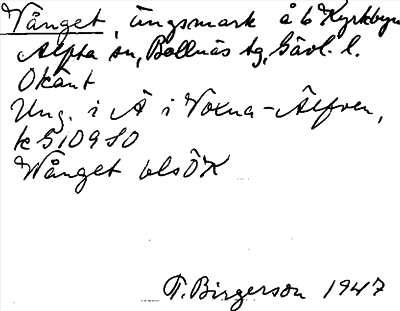 Vånget, ängsmark å 6 Kyrkbyn
Alfta sn, Bollnäs tg, Gävl. l.
Okänt
Ung. i Å i Voxna-Älfven,
k 5109 SO
Wånget blsÖK
T. Birgerson 1947